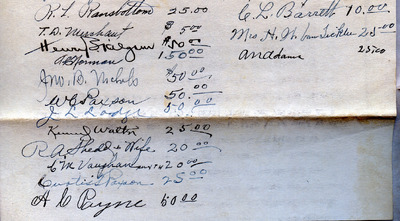 R. L. Ransbottom 25.00
T. D. Merchant $ 5.00
Henry $50.00
Norman 150.00
Jno. B. Nichols $50.00
W C Paxson 50.00
J. L. Lodge 50.00
Walter 25.00
R A Shedd & Wife 20.00
C M Vaughan 20.00
Curtis Paxson 25.00
A C Payne 50.00
C. L. Barrett 10.00
Mrs. H. N. Van Sickle 25.00
A N Adams 25.00